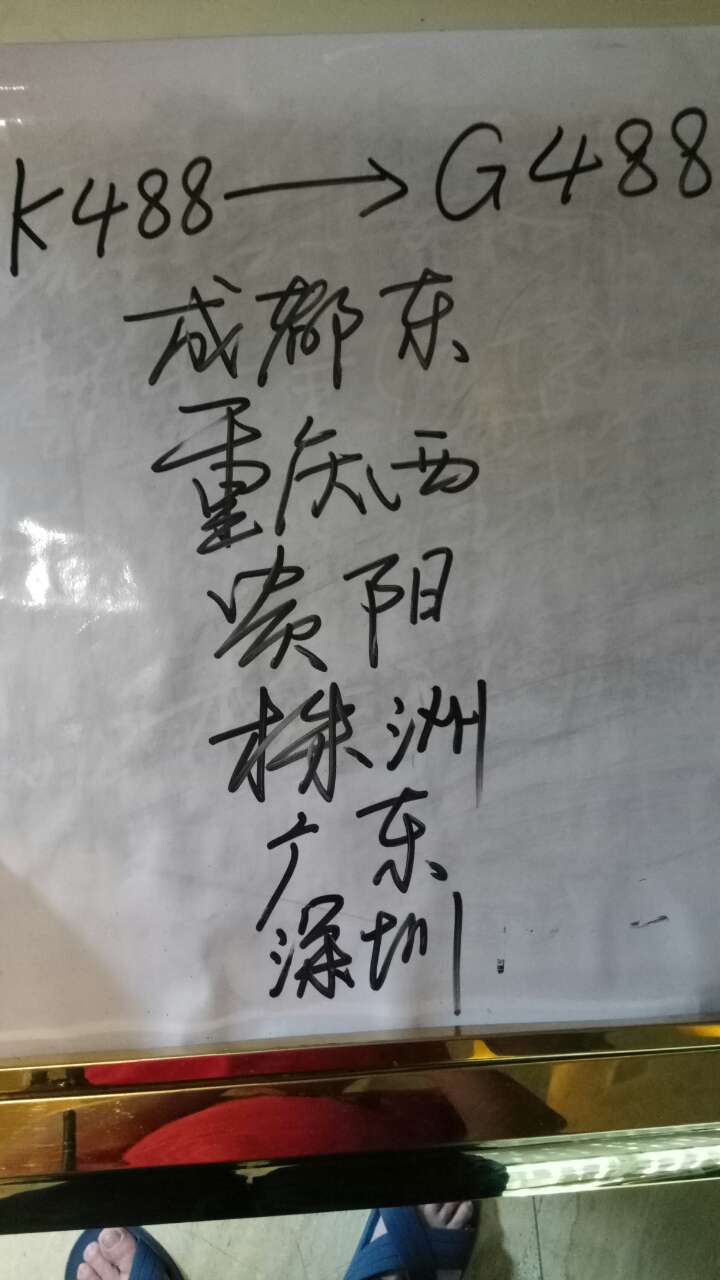 K488→G488
成都东
重庆西
贵阳
株洲
广东
深圳